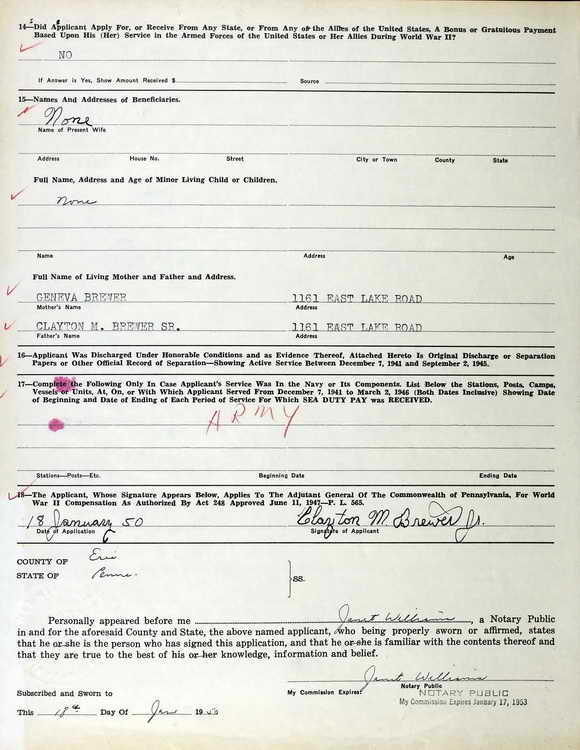 14—Did Applicant Apply For, or Receive From Any State, or From Any of the Allies of the United States, A Bonus or Gratuitous Payment
Based Upon His (Her) Service in the Armed Forces of the United States or Her Allies During World War II?
NO
If Answer is Yes, Show Amount Received $ Source
15—Names And Addresses of Beneficiaries.
None
Name of Present Wife
Address House No. Street City or Town County State
Full Name, Address and Age of Minor Living Child or Children.
None
Name Address Age
Full Name of Living Mother and Father and Address.
GENEVA BREWER 1161 EAST LAKE ROAD
Mother's Name Address
CLAYTON M. BREWER SR. 1161 EAST LAKE ROAD
Father's Name Address
16—Applicant Was Discharged Under Honorable Conditions and as Evidence Thereof, Attached Hereto Is Original Discharge or Separation
Papers or Other Official Record of Separation—Showing Active Service Between December 7, 1941 and September 2, 1945.
17—Complete the Following Only In Case Applicant's Service Was In the Navy or Its Components. List Below the Stations, Posts, Camps,
Vessels or Units, At, On, or With Which Applicant Served From December 7, 1941 to March 2, 1946 (Both Dates Inclusive) Showing Date
of Beginning and Date of Ending of Each Period of Service For Which SEA DUTY PAY was RECEIVED.
ARMY
Stations—Posts—Etc. Beginning Date Ending Date
18—The Applicant, Whose Signature Appears Below, Applies To The Adjutant General Of The Commonwealth of Pennsylvania, For World
War II Compensation As Authorized By Act 248 Approved June 11, 1947—P. L. 565.
18 January 50 Clayton M. Brewer Jr.
Date of Application Signature of Applicant
COUNTY OF Erie
STATE OF Penna. }ss.
Personally appeared before me Janet Williams, a Notary Public
in and for the aforesaid County and State, the above named applicant, who being properly sworn or affirmed, states
that he or she is the person who has signed this application, and that he or she is familiar with the contents thereof and
that they are true to the best of his or her knowledge, information and belief.
Janet Williams
Notary Public
Subscribed and Sworn to My Commission Expires: NOTARY PUBLIC
My Commission Expires January 17, 1953
This 18th Day Of Jan 1950